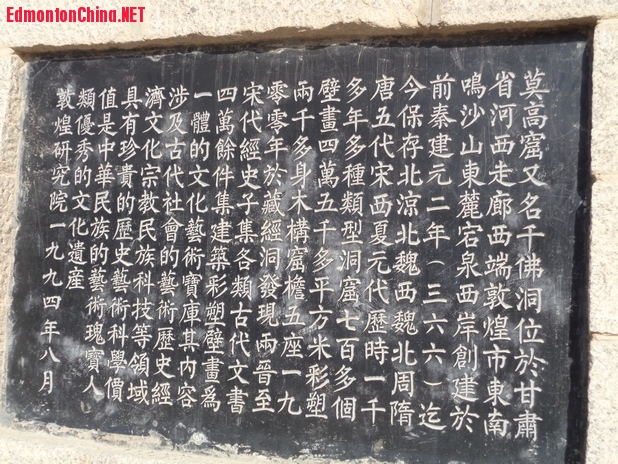 EdmontonChina.NET
莫高窟又名千佛洞位於甘肅
省河西走廊西端敦煌市東南
鳴沙山東麓宕泉西岸創建於
前秦建元二年(三六六)迄
今保存北涼北魏西魏北周隋
唐五代宋西夏元代歷時一千
多年多種類型洞窟七百多個
壁畫四萬五千多平方米彩塑
兩千多身木構窟檐五座一九
零零年於藏經洞發現兩晉至
宋代經史子集各類古代文書
四萬餘件集建築彩塑壁畫爲
一體的文化藝術寶庫其內容
涉及古代社會的藝術歷史經
濟文化宗教民族科技等領域
具有珍貴的歷史藝術科學價
值是中華民族的藝術瑰寶人
類優秀的文化遺産
敦煌研究院一九九四年八月